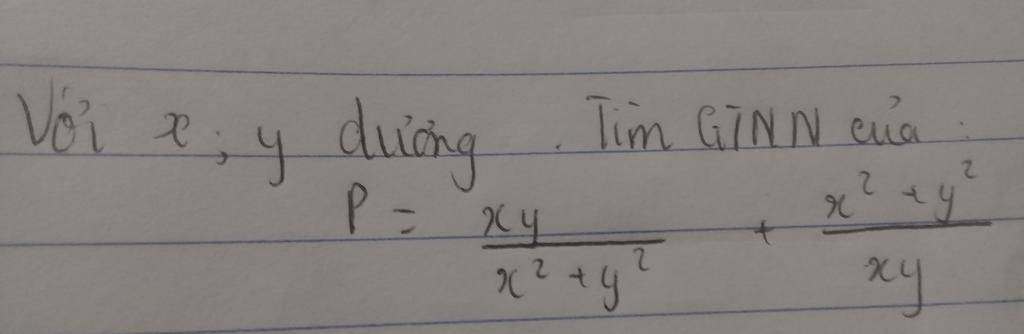 Với x; y dương. Tìm GTNN của:
P = \frac{xy}{x^2 + y^2} + \frac{x^2 + y^2}{xy}